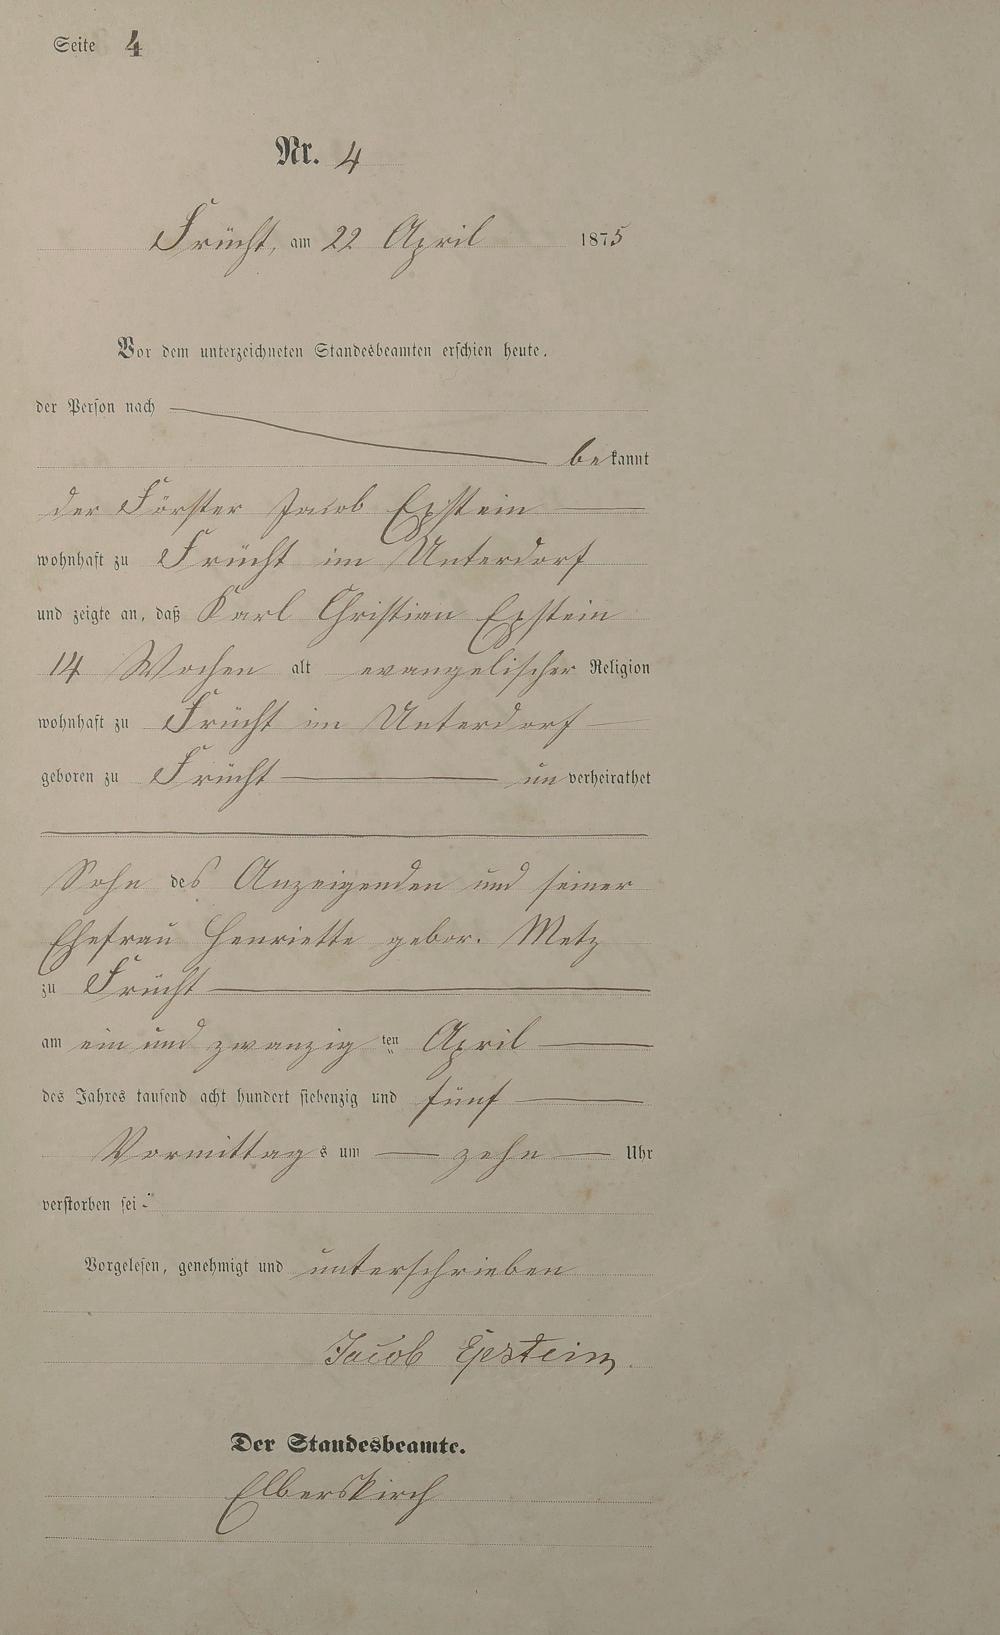 Seite 4
Nr. 4
Frücht, am 22 April 1875
Vor dem unterzeichneten Standesbeamten erschien heute,
der Person nach
bekannt
der Förster Jacob Epstein
wohnhaft zu Frücht im Unterdorf
und zeigte an, daß Karl Christian Epstein
14 Wochen alt evangelischer Religion
wohnhaft zu Frücht im Unterdorf
geboren zu Frücht unverheirathet
Sohn des Anzeigenden und seiner
Ehefrau Henriette gebor. Metz
zu Frücht
am ein und zwanzig ten April
des Jahres tausend acht hundert siebenzig und fünf
Vormittags um zehn Uhr
verstorben sei.
Vorgelesen, genehmigt und unterschrieben
Jacob Epstein
Der Standesbeamte.
Elberskirch